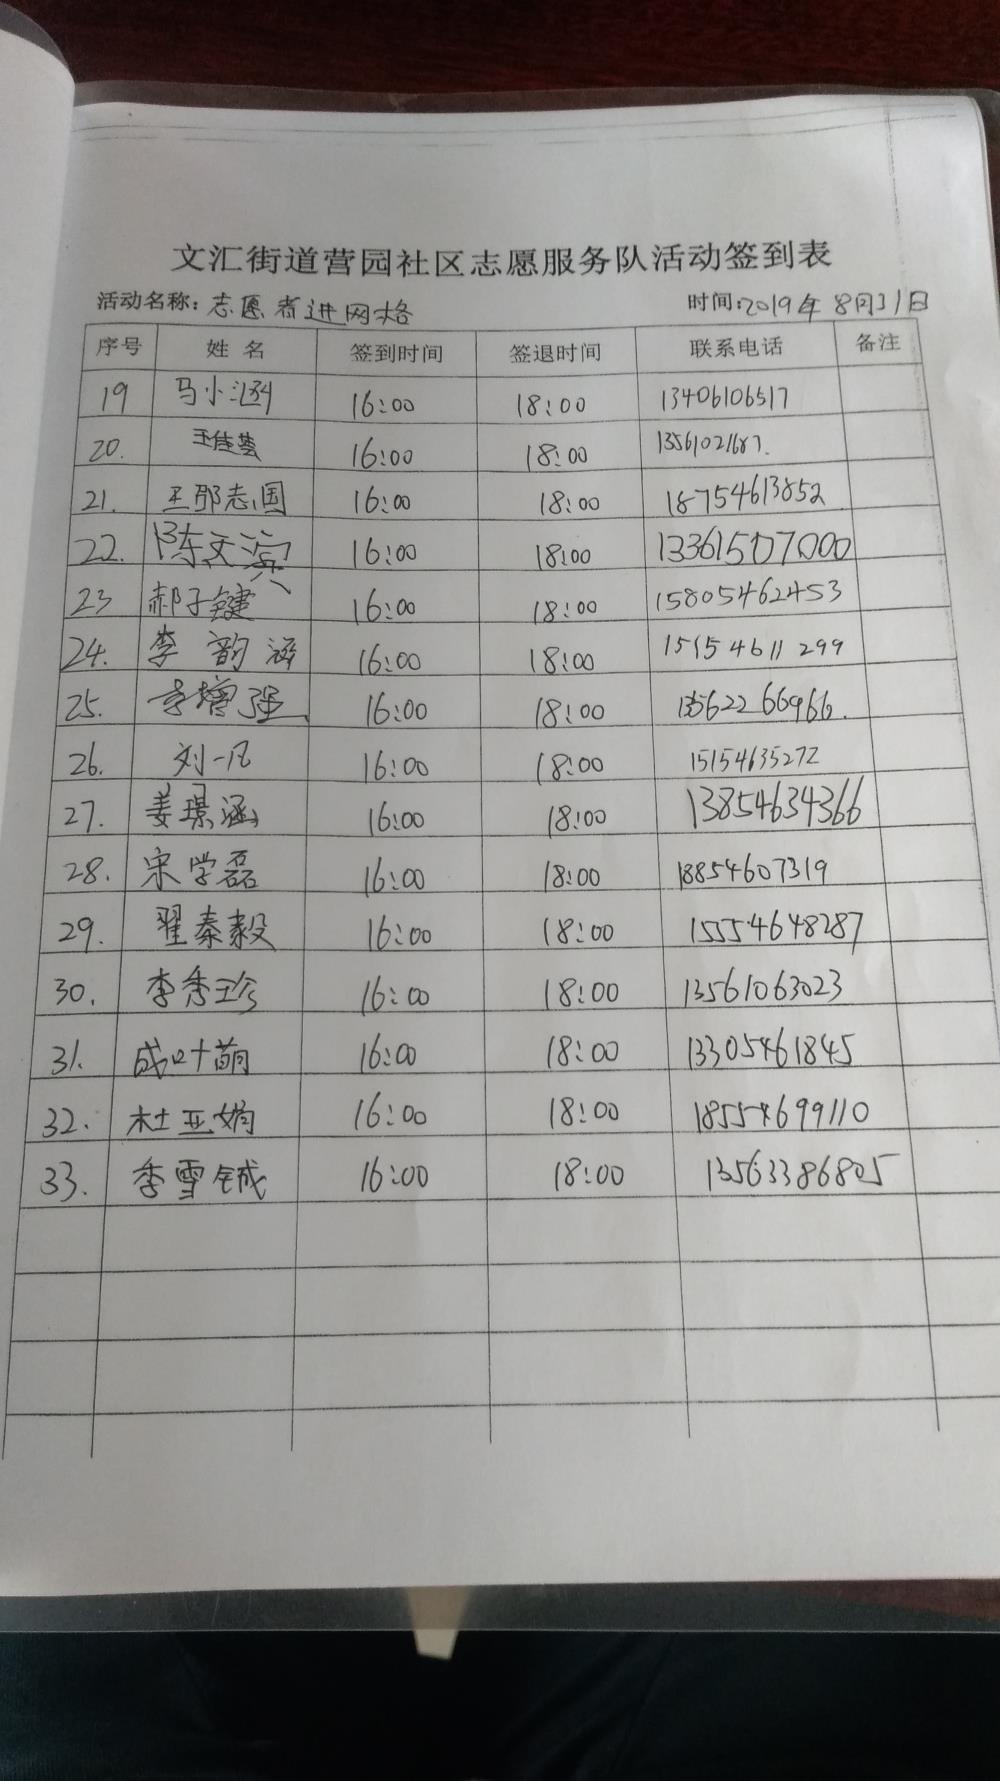 文汇街道营园社区志愿服务队活动签到表
活动名称：志愿者进网格 时间：2019年8月31日
序号 姓名 签到时间 签退时间 联系电话 备注
19 马小涵 16:00 18:00 13406106517
20. 王佳芸 16:00 18:00 13561021687.
21. 王邵志国 16:00 18:00 18754613852
22. 陈文滨 16:00 18:00 13361507000
23 郝子键 16:00 18:00 15805462453
24. 李韵涵 16:00 18:00 15154611299
25. 李增强 16:00 18:00 13562266966.
26. 刘一凡 16:00 18:00 15154635272
27. 姜璟涵 16:00 18:00 13854634366
28. 宋学磊 16:00 18:00 18854607319
29. 翟秦毅 16:00 18:00 15554648287
30. 李秀珍 16:00 18:00 13561063023
31. 成叶萌 16:00 18:00 13305461845
32. 杜亚娟 16:00 18:00 18554699110
33. 季雪铖 16:00 18:00 13563386805